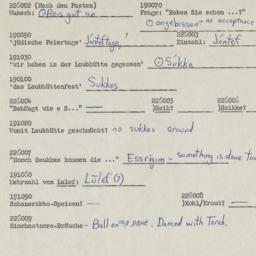 225002 (Noch dem Fasten)
Wunsch:
190070
Frage: "Haben Sie schon ...?"
angebissen - no acceptance
190090
'jüdische Feiertage'
225003
Einzahl: Jontef
191030
'wir haben in der Laubhütte gegessen' Sukke
190100
'das Laubhüttenfest' Sukkes
225004
"Behügt wie e S..." —
225005
)Seik? —
225006
)Seikke? —
191020
Womit Laubhütte geschmückt? no sukkes around
225007
"Hooch Soukkes kummen die ..." Essrigum - something is done
191050
Mehrzahl von Lulef: Lūlef (?)
191090
Schauerabbo-Speisen? —
225008
)Kohl/Kraut? —
225009
Simchestoore-Bräuche- Ball on , Danced with Torah.